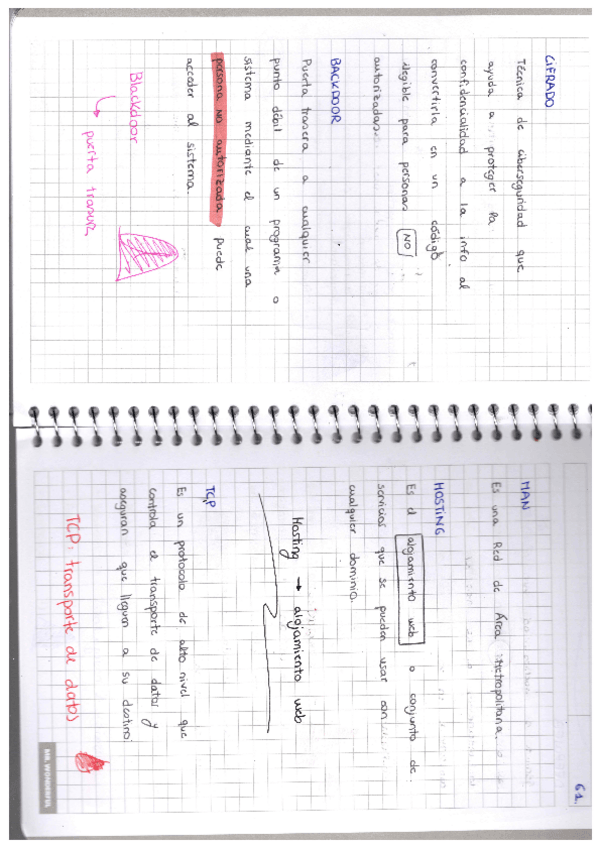 CIFRADO
Técnica de ciberseguridad que
ayuda a proteger la
confidencialidad a la info al
convertirla en un código
ilegible para personas NO
autorizadas.
BACKDOOR
Puerta trasera a cualquier
punto débil de un programa o
sistema mediante el cual una
persona NO autorizada puede
acceder al sistema.
Blackdoor
→ puerta trasera
61.
MAN
Es una Red de Área Metropolitana.
HOSTING
Es el alojamiento web o conjunto de
servicios que se pueden usar con
cualquier dominio.
Hosting → alojamiento web
TCP
Es un protocolo de alto nivel que
controla el transporte de datos y
aseguran que lleguen a su destino.
TCP: transporte de datos
MR. WONDERFUL